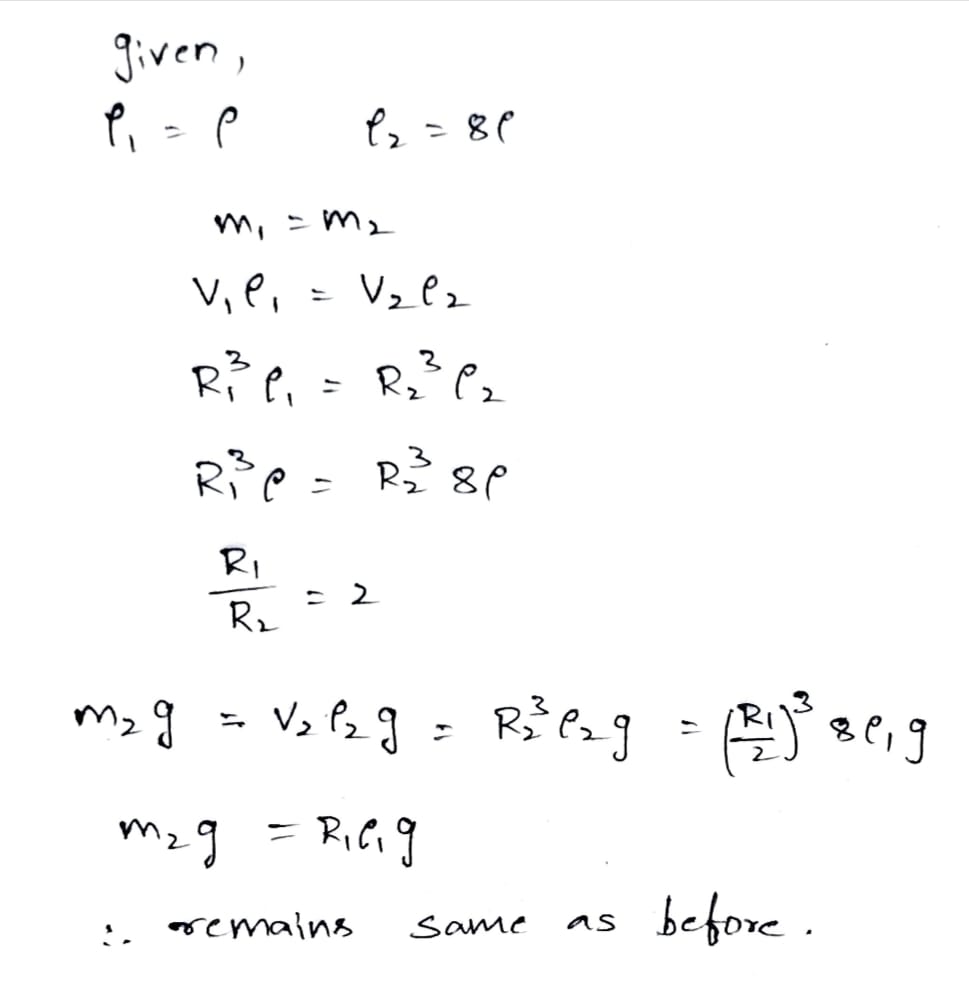 given,
ρ₁ = ρ ρ₂ = 8ρ
m₁ = m₂
V₁ρ₁ = V₂ρ₂
R₁³ρ₁ = R₂³ρ₂
R₁³ρ = R₂³ 8ρ
R₁/R₂ = 2
m₂g = V₂ρ₂g = R₂³ρ₂g = (R₁/2)³ 8ρ₁g
m₂g = R₁ρ₁g
∴ remains same as before.